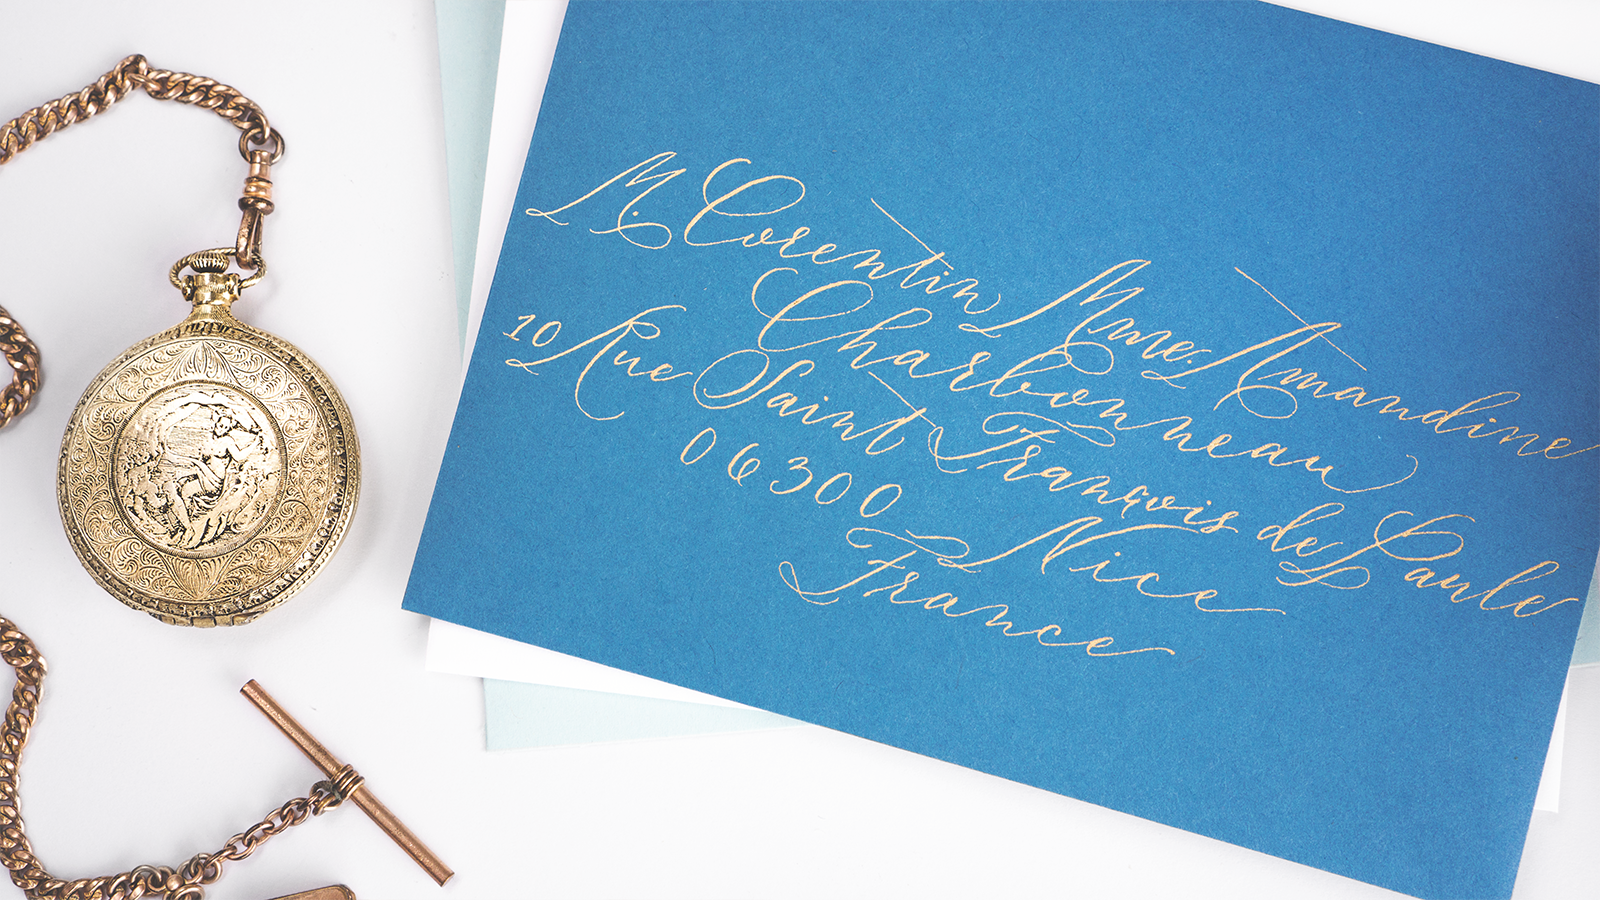 M. Corentin Mme. Amandine
Charbonneau
10 Rue Saint François de Paule
06300 Nice
France